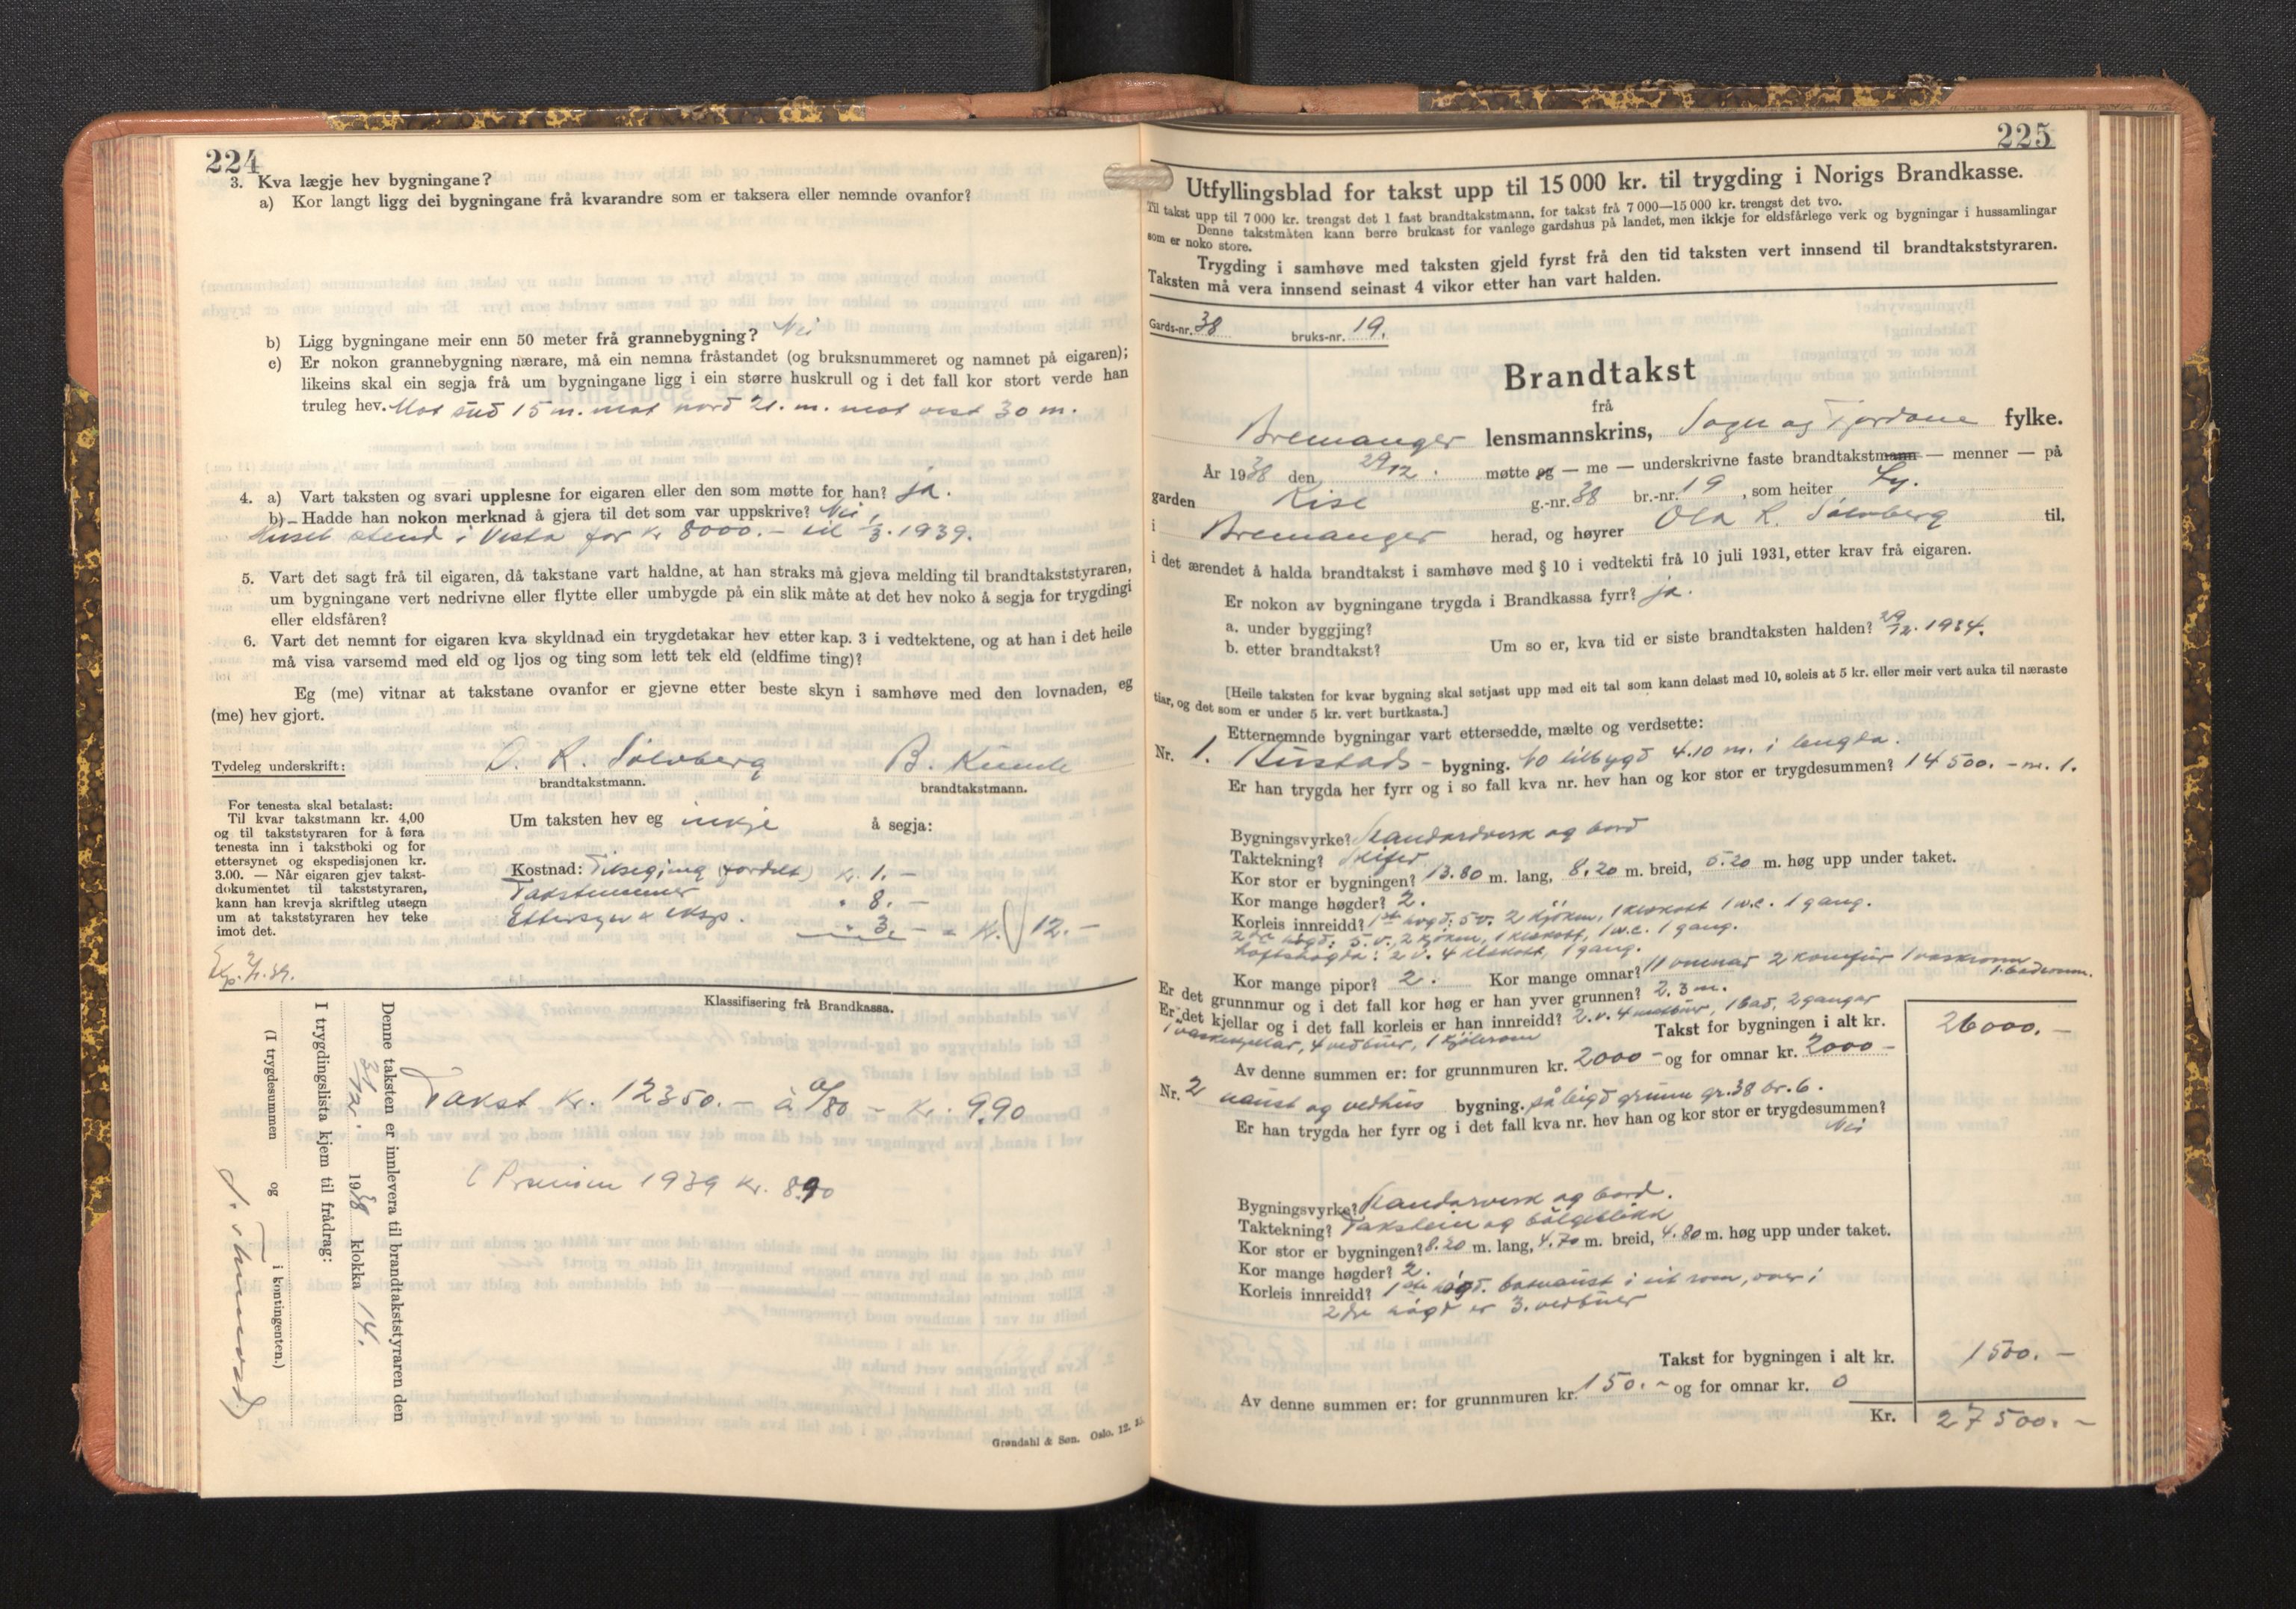 224
3. Kva lægje hev bygningane?
a) Kor langt ligg dei bygningane frå kvarandre som er taksera eller nemnde ovanfor?
b) Ligg bygningane meir enn 50 meter frå grannebygning? Nei
c) Er nokon grannebygning nærare, må ein nemna fråstandet (og bruksnummeret og namnet på eigaren);
likeins skal ein segja frå um bygningane ligg i ein større huskrull og i det fall kor stort verde han
truleg hev. Mot süd 15 m. mot nord 21. m. mot vest 30 m.
4. a) Vart taksten og svari upplesne for eigaren eller den som møtte for han? ja.
b) Hadde han nokon merknad å gjera til det som var uppskrive? Nei
Huset stend i Vesta for kr 8000.- til 1/3. 1939.
5. Vart det sagt frå til eigaren, då takstane vart haldne, at han straks må gjeva melding til brandtakststyraren,
um bygningane vert nedrivne eller flytte eller umbygde på ein slik måte at det hev noko å segja for trygdingi
eller eldsfåren?
6. Vart det nemnt for eigaren kva skyldnad ein trygdetakar hev etter kap. 3 i vedtektene, og at han i det heile
må visa varsemd med eld og ljos og ting som lett tek eld (eldfime ting)?
Eg (me) vitnar at takstane ovanfor er gjevne etter beste skyn i samhøve med den lovnaden, eg
(me) hev gjort.
Tydeleg underskrift: O. R. Solvberg B. Kunde
brandtakstmann. brandtakstmann.
For tenesta skal betalast:
Til kvar takstmann kr. 4,00
og til takststyraren for å føra
tenesta inn i takstboki og for
ettersynet og ekspedisjonen kr.
3.00. — Når eigaren gjev takst-
dokumentet til takststyraren,
kann han krevja skriftleg utsegn
um at takststyraren hev teke
imot det.
Um taksten hev eg inkje å segja:
Kostnad: Tilsegjing (fordelt) kr. 1.-
Takstmenner " 8.-
Ettersyn & eksp. " 3.- = Kr. 12.-
Exp. 2/1.39.
Klassifisering frå Brandkassa.
Denne taksten er innlevera til brandtakststyraren den
31/12. 1938 klokka 14.
I trygdingslista kjem til frådrag:
(I trygdesummen og i kontingenten.)
Takst kr. 12350.- à a/80 - Kr. 9.90
(Premien 1939 kr. 8.90
Grøndahl & Søn. Oslo. 12.
225
Utfyllingsblad for takst upp til 15 000 kr. til trygding i Norigs Brandkasse.
Til takst upp til 7 000 kr. trengst det 1 fast brandtakstmann, for takst frå 7 000—15 000 kr. trengst det tvo.
Denne takstmåten kann berre brukast for vanlege gardshus på landet, men ikkje for eldsfårlege verk og bygningar i hussamlingar
som er noko store.
Trygding i samhøve med taksten gjeld fyrst frå den tid taksten vert innsend til brandtakststyraren.
Taksten må vera innsend seinast 4 vikor etter han vart halden.
Gards-nr. 38 bruks-nr. 19.
Brandtakst
frå
Bremanger lensmannskrins, Sogn og Fjordane fylke.
År 1938 den 29/12. møtte eg — me — underskrivne faste brandtakstmann — menner — på
garden Kise g.-nr. 38 br.-nr. 19, som heiter Ly.
i Bremanger herad, og høyrer Ola R. Solvberg til,
i det ærendet å halda brandtakst i samhøve med § 10 i vedtekti frå 10 juli 1931, etter krav frå eigaren.
Er nokon av bygningane trygda i Brandkassa fyrr? ja.
a. under byggjing?
b. etter brandtakst? Um so er, kva tid er siste brandtaksten halden? 29/12. 1934.
[Heile taksten for kvar bygning skal setjast upp med eit tal som kann delast med 10, soleis at 5 kr. eller meir vert auka til næraste
tiar, og det som er under 5 kr. vert burtkasta.]
Etternemnde bygningar vart ettersedde, mælte og verdsette:
Nr. 1. Büstads- bygning. tilbygd 4.10 m. i lengda.
Er han trygda her fyrr og i so fall kva nr. hev han og kor stor er trygdesummen? 14500.- nr. 1.
Bygningsvyrke? Standardverk og bord
Taktekning? Skifer
Kor stor er bygningen? 13.80 m. lang, 8.20 m. breid, 5.20 m. høg upp under taket.
Kor mange høgder? 2.
Korleis innreidd? 1ste høgd: 5 v. 2 kjöken, 1 kleskott 1 w.c. 1 gang.
2dre høgd: 5. v., 2 kjöken, 1 kleskott, 1 w.c. 1 gang.
Loftshøgda: 2 v. 4 kleskott, 1 gang.
Kor mange pipor? 2. Kor mange omnar? 11 omnar 2 komfür 1 vaskeomn
1. badeomn.
Er det grunnmur og i det fall kor høg er han yver grunnen? 2.3 m.
Er det kjellar og i det fall korleis er han innreidd? 2. v. 4 matbüer, 1 bad, 2 gangar
1 vaskekjellar, 4 vedbüer, 1 kjölerom
Takst for bygningen i alt kr. 26000.-
Av denne summen er: for grunnmuren kr. 2000- og for omnar kr. 2000-
Nr. 2 naust og vedhus bygning. på leigd grunn gr. 38 br. 6.
Er han trygda her fyrr og i det fall kva nr. hev han og kor stor er trygdesummen?
Nei
Bygningsvyrke? Standarverk og bord.
Taktekning? Takstein og bölgeblikk
Kor stor er bygningen? 8.20 m. lang, 4.70 m. breid, 4.80 m. høg upp under taket.
Kor mange høgder? 2.
Korleis innreidd? 1ste høgd. båtnaust i eit rom, over i
2dre høgd er 3. vedbüer
Takst for bygningen i alt kr. 1500.-
Av denne summen er: for grunnmuren kr. 150.- og for omnar kr. 0
Kr. 27500.-